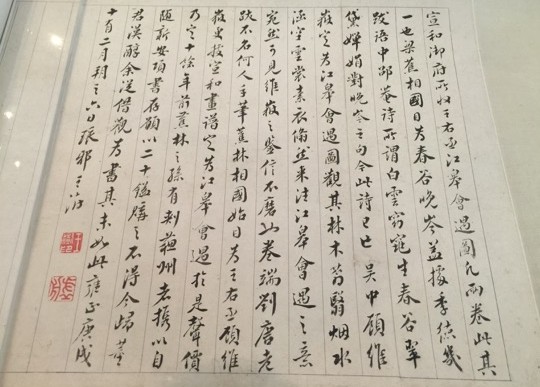 宣和御府所收王右丞江皋會遇圖凡兩卷此其
一也梁蕉相國目為春谷晚岑蓋據季德幾
跋語中邵菴詩所謂白雲窈窕生春谷翠
黛嬋娟對晚岑之句今此詩已亡吳中顧維
嶽定為江皋會遇圖觀其林木蓊翳烟水
涵空雲裳素衣翛然來往江皋會遇之意
宛然可見維嶽之鑒信不磨此卷端劉唐老
跋不名何人手筆蕉林相國始目為王右丞顧維
嶽更按宣和畫譜定為江皋會遇於是聲價
乃定十餘年前蕉林之孫有刺蘇州者攜以自
隨新安項書存願以二十鎰購之不得今歸董
君漢醇余從借觀為書其末如此雍正庚戌
十有二月朔之六日琅邪王澍